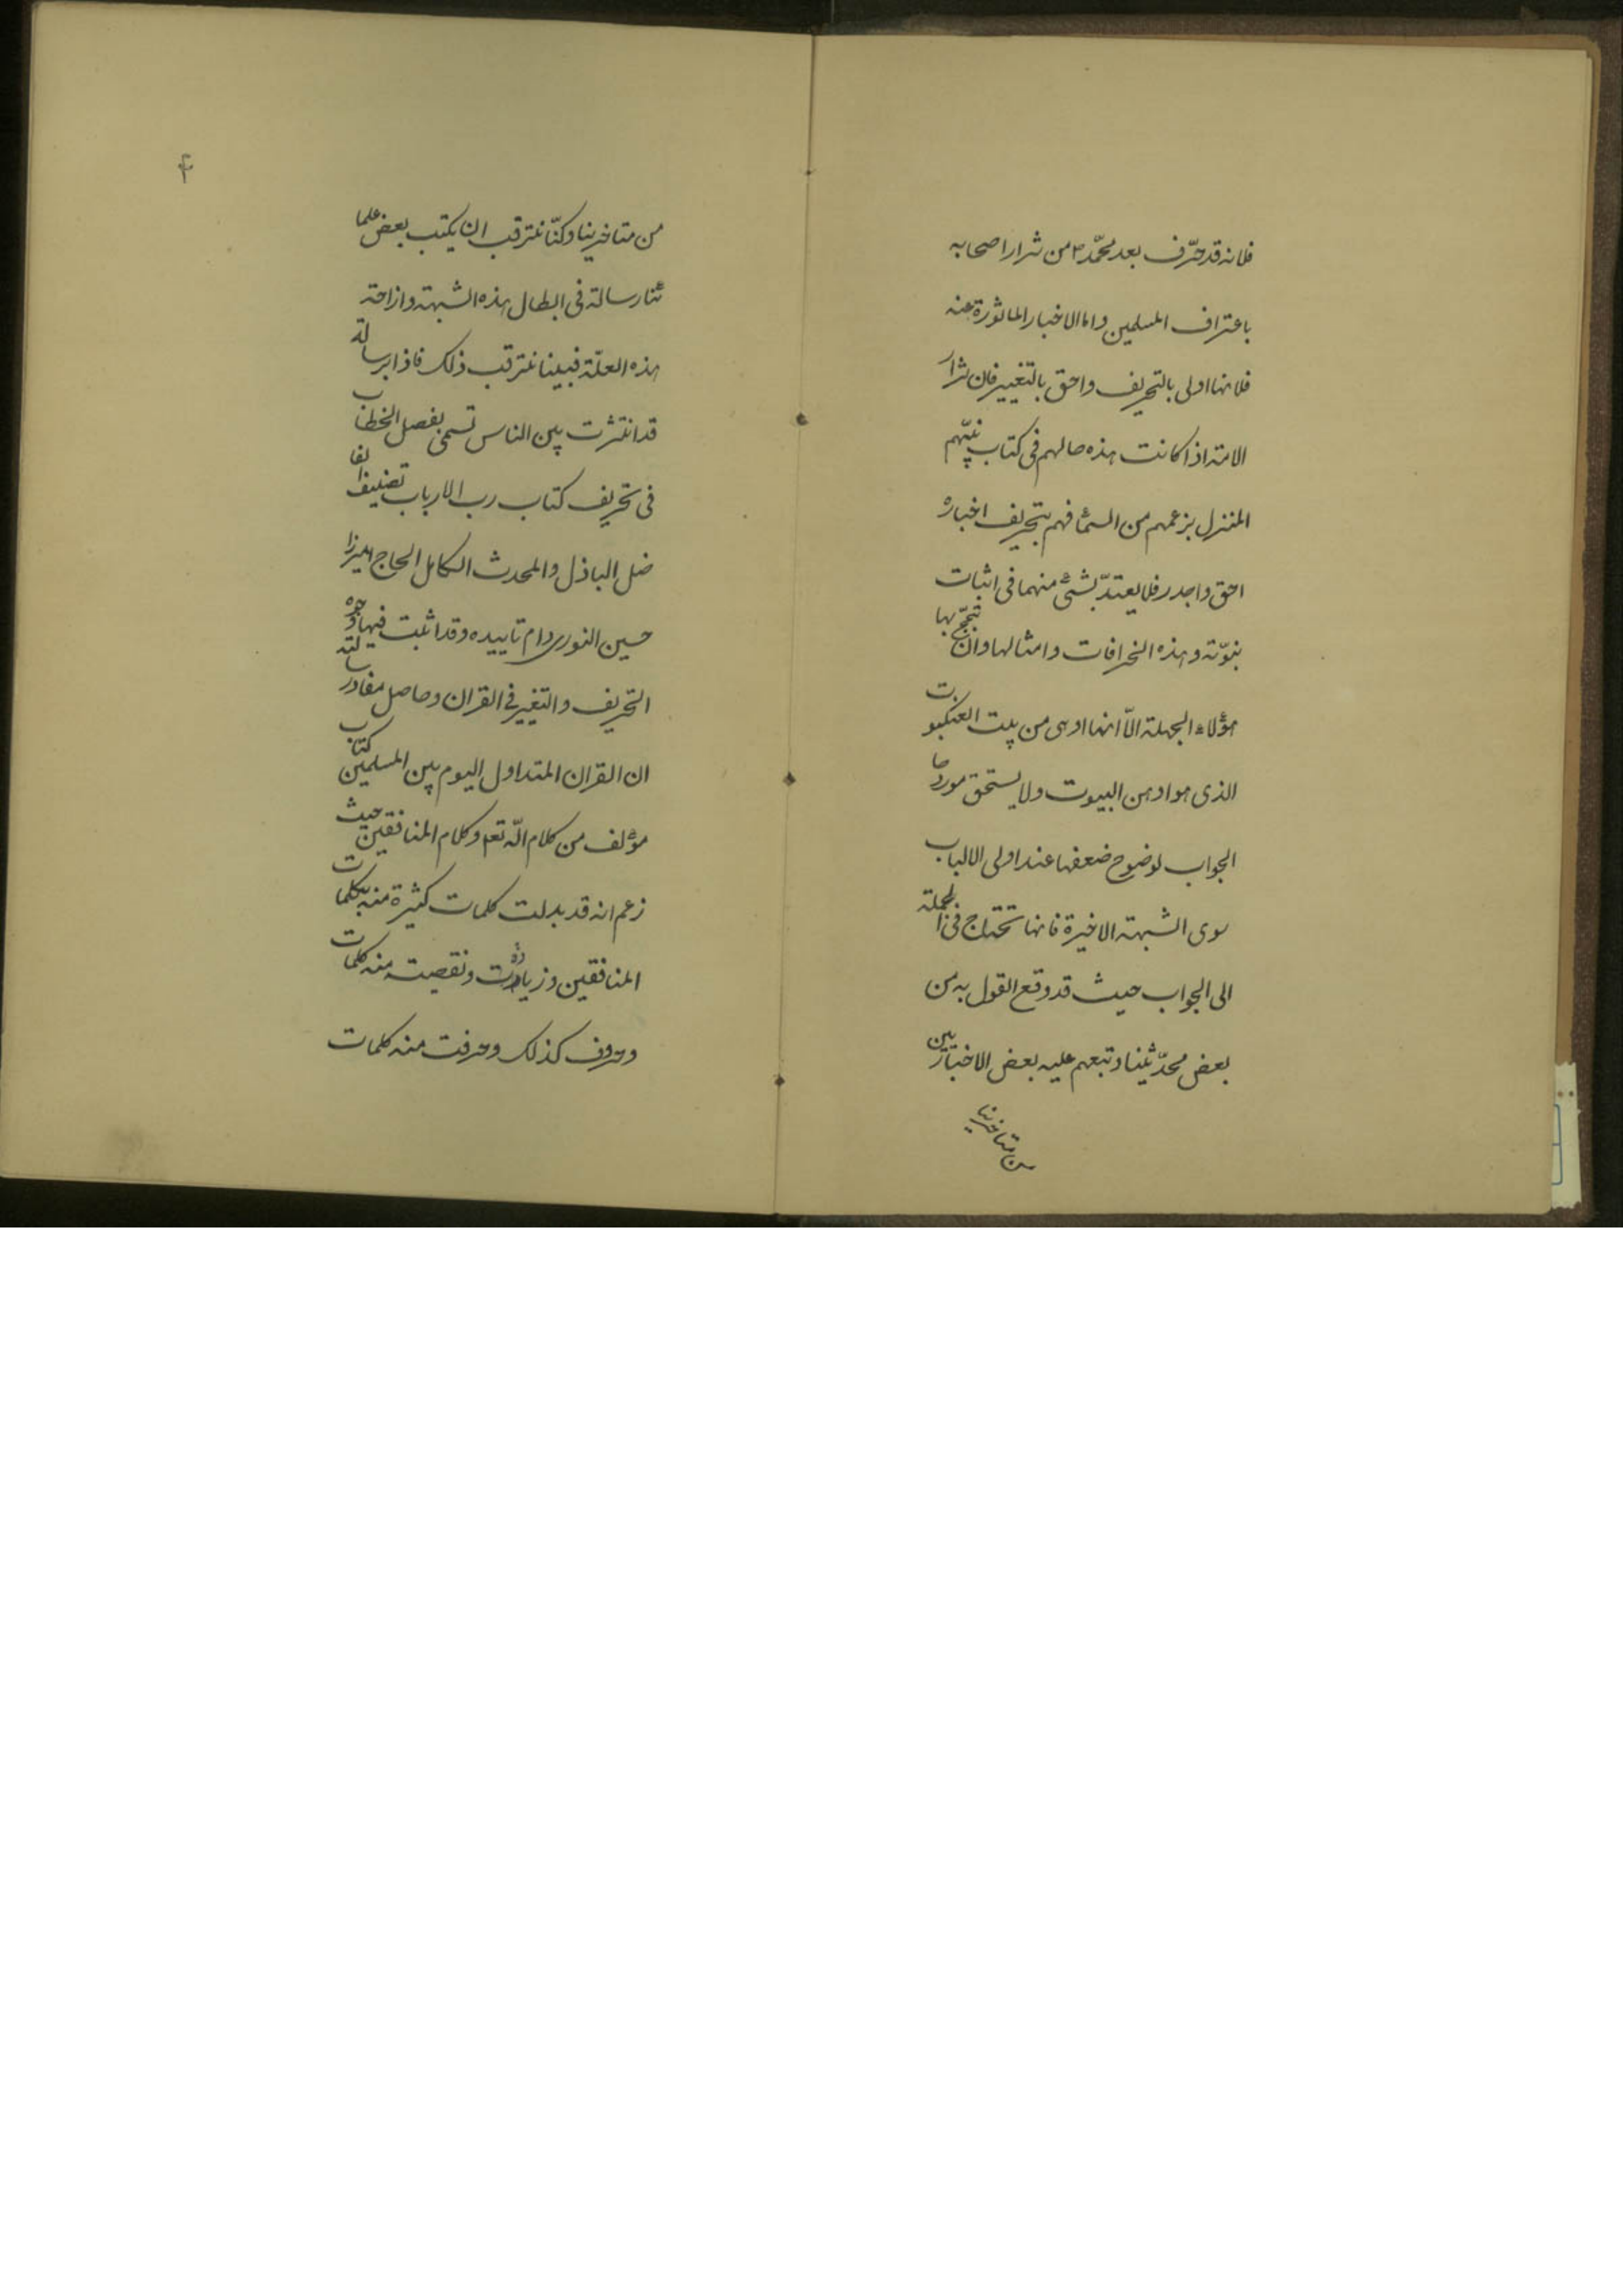 فلانه قد حرّف بعد محمّد ص من شرار اصحابه
باعتراف المسلمين واما الاخبار الماثورة عنه
فلانها اولى بالتحريف واحق بالتغيير فان شرار
الامة اذا كانت هذه حالهم فى كتاب نبيّهم
المنزل بزعمهم من السماء فهم بتحريف اخباره
احق واجدر فلا يعتدّ بشئ منهما فى اثبات
نبوّته وهذه الخرافات وامثالها وان تبجّح بها
هؤلاء الجهلة الّا انها اوهى من بيت العنكبوت
الذى هو اوهن البيوت ولا يستحق موردها
الجواب لوضوح ضعفها عند اولى الالباب
سوى الشبهة الاخيرة فانها تحتاج فى الجملة
الى الجواب حيث قد وقع القول به من
بعض محدّثينا وتبعهم عليه بعض الاخباريين
من متاخرينا
۴
من متاخرينا وكنّا نترقب ان يكتب بعض علما
ئنا رسالة فى ابطال هذه الشبهة وازاحة
هذه العلّة فبينا نترقب ذلك فاذا برسالة
قد انتشرت بين الناس تسمى بفصل الخطاب
فى تحريف كتاب رب الارباب تصنيف الفا
ضل الباذل والمحدث الكامل الحاج ميرزا
حسين النورى دام تاييده وقد اثبت فيها وجوه
التحريف والتغيير فى القران وحاصل مفاد رسالته
ان القران المتداول اليوم بين المسلمين كتاب
مؤلف من كلام الله تعم وكلام المنافقين حيث
زعم انه قد بدلت كلمات كثيرة منه بكلمات
المنافقين وزيادت ونقصيت منه كلمات
وحروف كذلك وحرفت منه كلمات